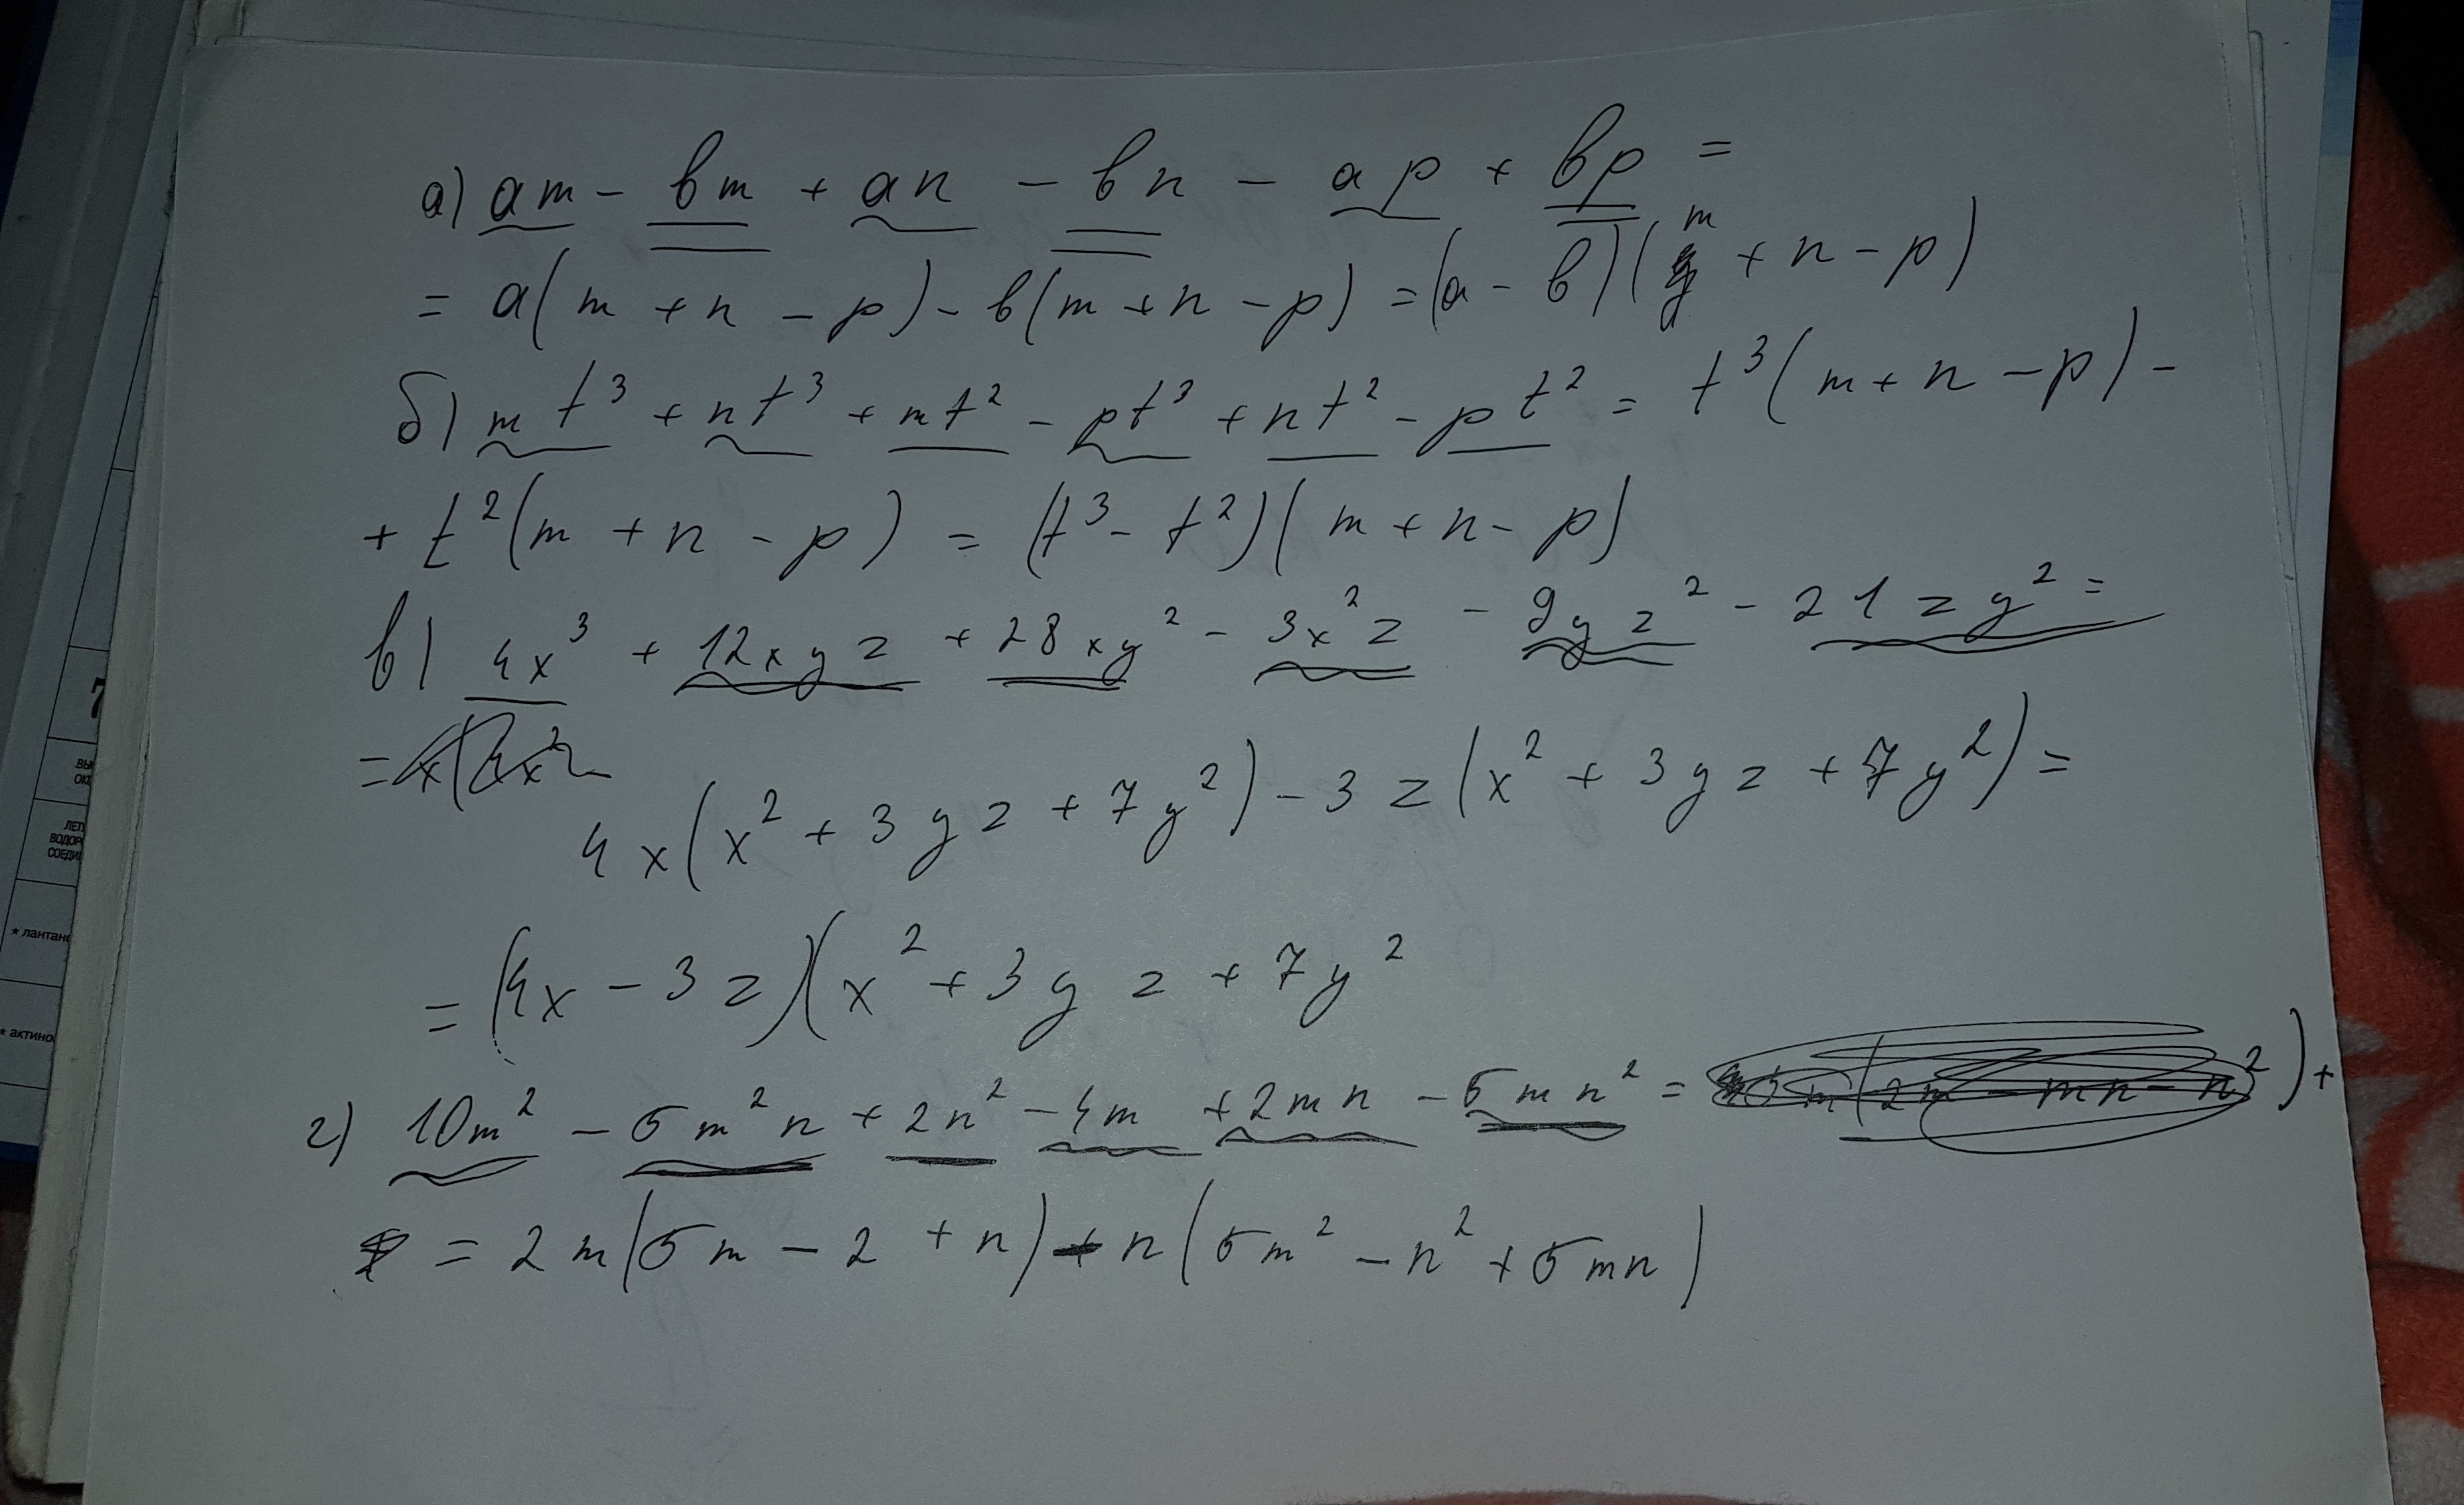 а) am - bm + an - bn - ap + bp =
= a(m + n - p) - b(m + n - p) = (a - b)(m + n - p)
б) mt³ + nt³ + mt² - pt³ + nt² - pt² = t³(m + n - p) -
+ t²(m + n - p) = (t³ - t²)(m + n - p)
в) 4x³ + 12xyz + 28xy² - 3x²z - 9yz² - 21zy² =
= x(4x²
4x(x² + 3yz + 7y²) - 3z(x² + 3yz + 7y²) =
= (4x - 3z)(x² + 3yz + 7y²
г) 10m² - 5m²n + 2n² - 4m + 2mn - 5mn² = 5m(2m - mn - n²) +
= 2m(5m - 2 + n) - n(5m² - n² + 5mn)
7
ВЫ
ОК
ЛЕТ
ВОДОР
СОЕДИ
* лантан
* актино